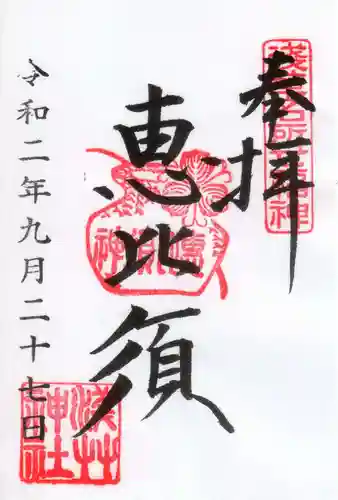 奉拝
恵比須
令和二年九月二十七日
浅草
神社